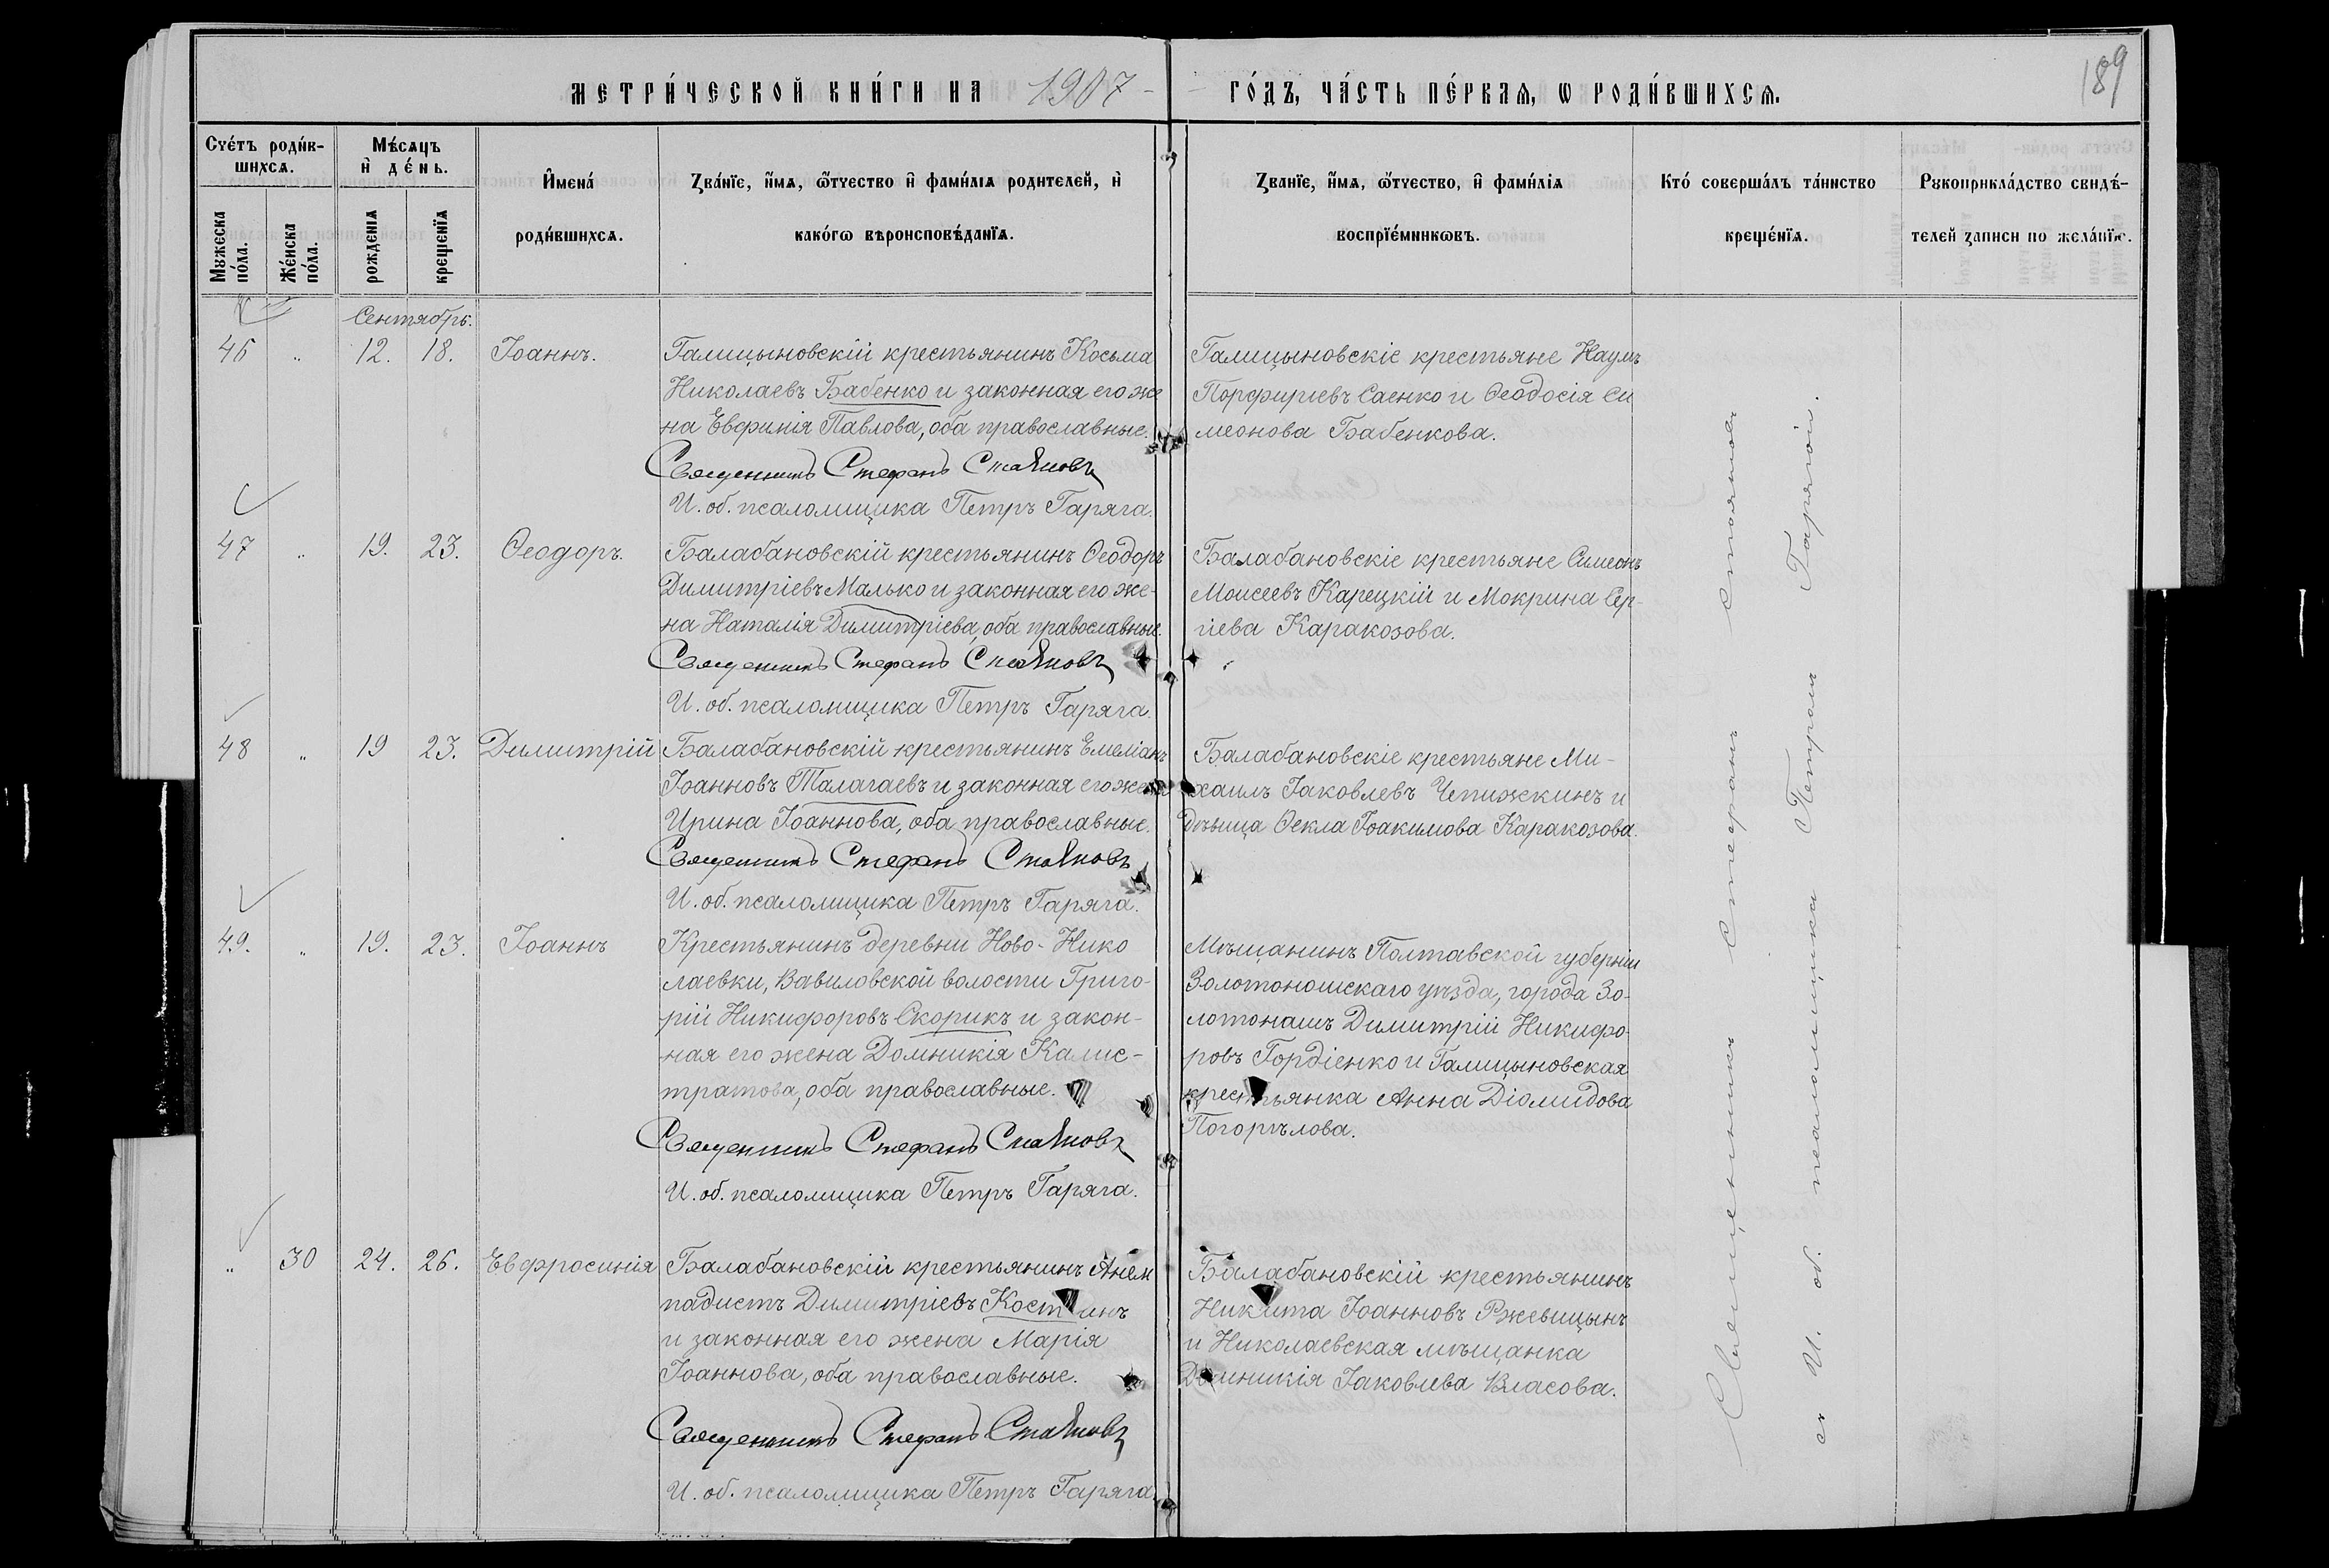 МЕТРИ́ЧЕСКОЙ КНИ́ГИ НА 1907 ГО́ДЪ, ЧА́СТЬ ПЕ́РВАѦ, Ѡ РОДИ́ВШИХСѦ.
189
Счетъ роди́в-
шихсѧ.
Мѣ́сѧцъ
и҆ де́нь.
Мꙋжеска
по́ла.
Же́нска
по́ла.
рожденїѧ
крещенїѧ
И҆мена́
роди́вшихсѧ.
Зва́нїе, и҆́мѧ, ѻ҆́тчество и҆ фами́лїѧ родителей, и҆
како́гѡ вѣроисповѣ́данїѧ.
Званїе, и҆́мѧ, ѻ҆́тчество, и҆ фами́лїѧ
воспрїе́мникѡвъ.
Кто́ соверша́лъ та́инство
креще́нїѧ.
Рꙋкоприкла́дство свидѣ́-
телей записи по жела́нїю.
Сентябрь.
46 " 12. 18. Іоаннъ.
Галицыновскій крестьянинъ Косьма
Николаевъ Бабенко и законная его же
на Евфимія Павлова, оба православные.
Священникъ Стефанъ Стояновъ
И. об. псаломщика Петръ Гаряга.
Галицыновскіе крестьяне Наумъ
Порфиріевъ Саенко и Ѳеодосія Си
меонова Бабенкова.
47 " 19. 23. Ѳеодоръ.
Балабановскій крестьянинъ Ѳеодоръ
Димитріевъ Малько и законная его же-
на Наталія Димитріева, оба православные.
Священникъ Стефанъ Стояновъ
И. об. псаломщика Петръ Гаряга.
Балабановскіе крестьяне Симеонъ
Моисеевъ Карецкій и Мокрина Сер-
гіева Каракозова.
48 " 19 23. Димитрій
Балабановскій крестьянинъ Емеліанъ
Іоанновъ Талагаевъ и законная его жена
Ирина Іоаннова, оба православные.
Священникъ Стефанъ Стояновъ
И. об. псаломщика Петръ Гаряга.
Балабановскіе крестьяне Ми-
хаилъ Іаковлевъ Чепижкинъ и
Дѣвица Ѳекла Іоакимова Каракозова.
49. " 19. 23. Іоаннъ
Крестьянинъ деревни Ново-Нико
лаевки, Вавиловской волости Григо-
рій Никифоровъ Скорикъ и закон-
ная его жена Домникія Калис-
тратова, оба православные.
Священникъ Стефанъ Стояновъ
И. об. псаломщика Петръ Гаряга.
Мѣщанинъ Полтавской губерніи
Золотоношскаго уѣзда, города Зо-
лотонашъ Димитрій Никифо-
ровъ Гордіенко и Галицыновская
крестьянка Анна Діомидова
Погорѣлова.
" 30 24. 26. Евфросинія
Балабановскій крестьянинъ Анем
падистъ Димитріевъ Костинъ
и законная его жена Марія
Іоаннова, оба православные.
Священникъ Стефанъ Стояновъ
И. об. псаломщика Петръ Гаряга.
Балабановскій крестьянинъ
Никита Іоанновъ Ржевицынъ
и Николаевская мѣщанка
Домникія Іаковлева Власова.
Священникъ Стефанъ Стояновъ
съ И. об. псаломщика Петромъ Гарягой.